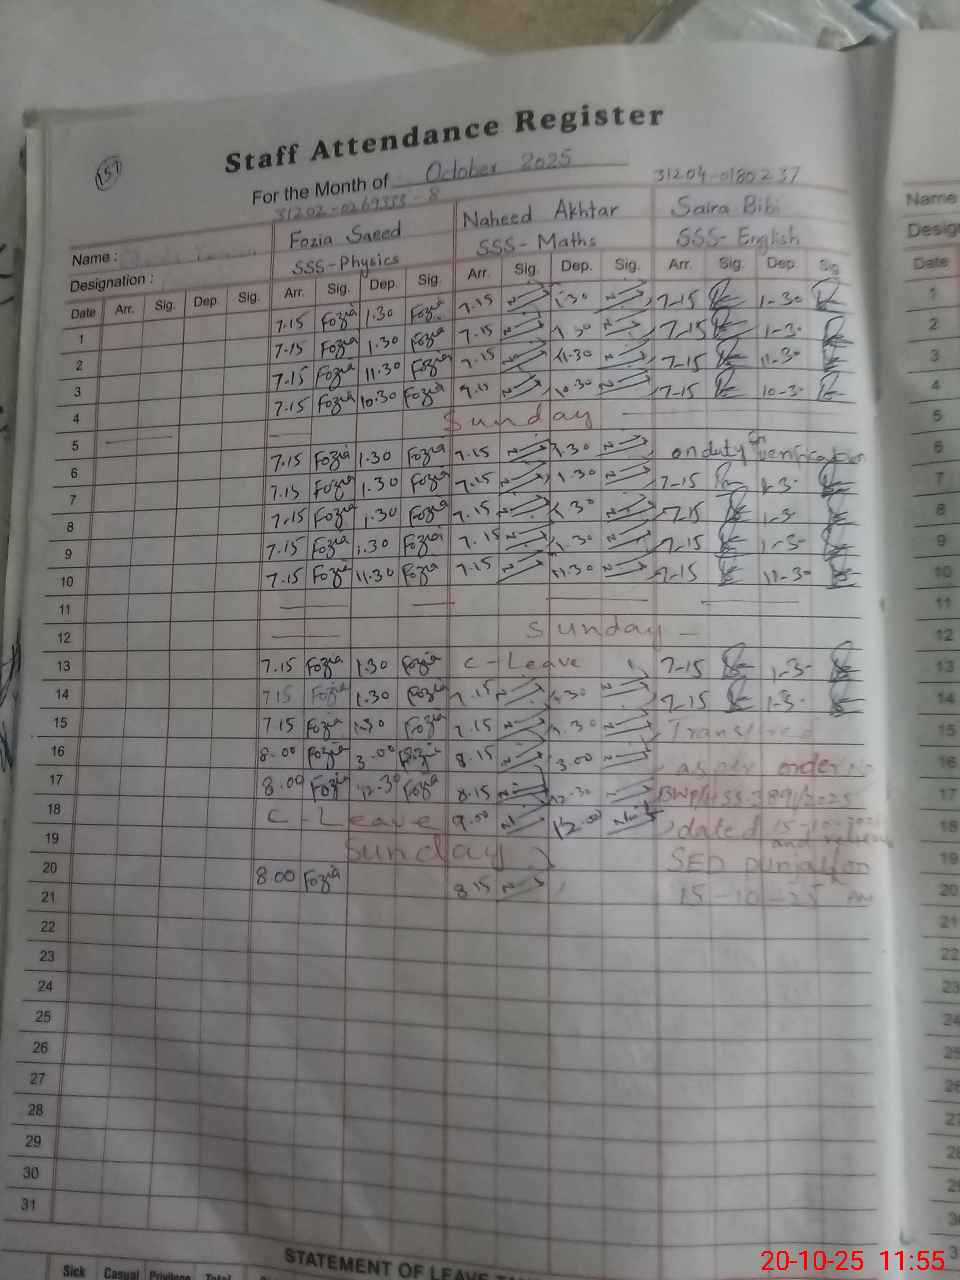 157
Staff Attendance Register
For the Month of October 2025
31202-0269353-8
31204-0180237
Name : Fozia Saeed Naheed Akhtar Saira Bibi
Designation : SSS-Physics SSS-Maths SSS-English
Date Arr. Sig. Dep. Sig. Arr. Sig. Dep. Sig. Arr. Sig. Dep. Sig. Arr. Sig. Dep. Sig
1 7.15 Fozia 1.30 Fozia 7.15 1.30 7-15 1-30
2 7.15 Fozia 1.30 Fozia 7.15 1.30 7-15 1-3-
3 7.15 Fozia 11.30 Fozia 7.15 11.30 7-15 11-30
4 7.15 Fozia 10.30 Fozia 10.30 7-15 10-3-
5 Sunday
6 7.15 Fozia 1.30 Fozia 7.15 1.30 on duty on verification
7 7.15 Fozia 1.30 Fozia 7.15 1.30 7-15 1-3-
8 7.15 Fozia 1.30 Fozia 7.15 1.30 7-15 1-3-
9 7.15 Fozia 1.30 Fozia 7.15 1.30 7-15 1-3-
10 7.15 Fozia 11.30 Fozia 7.15 11.30 7-15 11-30
11
12 Sunday
13 7.15 Fozia 1.30 Fozia C-Leave 7-15 1-3-
14 7.15 Fozia 1.30 Fozia 7.15 1.30 7-15 1-3-
15 7.15 Fozia 1.30 Fozia 7.15 1.30
16 8.00 Fozia 3.00 Fozia 8.15 3.00 order
17 8.00 Fozia 12.30 Fozia 8.15 12.30
18 C-Leave 9.00 12.00 dated 15-10-
19 Sunday SED Punjab on
20 8.00 Fozia 8.15 15-10-25
21
22
23
24
25
26
27
28
29
30
31
STATEMENT OF LEAVE
Sick Casual Privilege Total
Name
Date
1
2
3
4
5
6
7
8
9
10
11
12
13
14
15
16
17
18
19
20
21
22
23
24
25
26
20-10-25 11:55